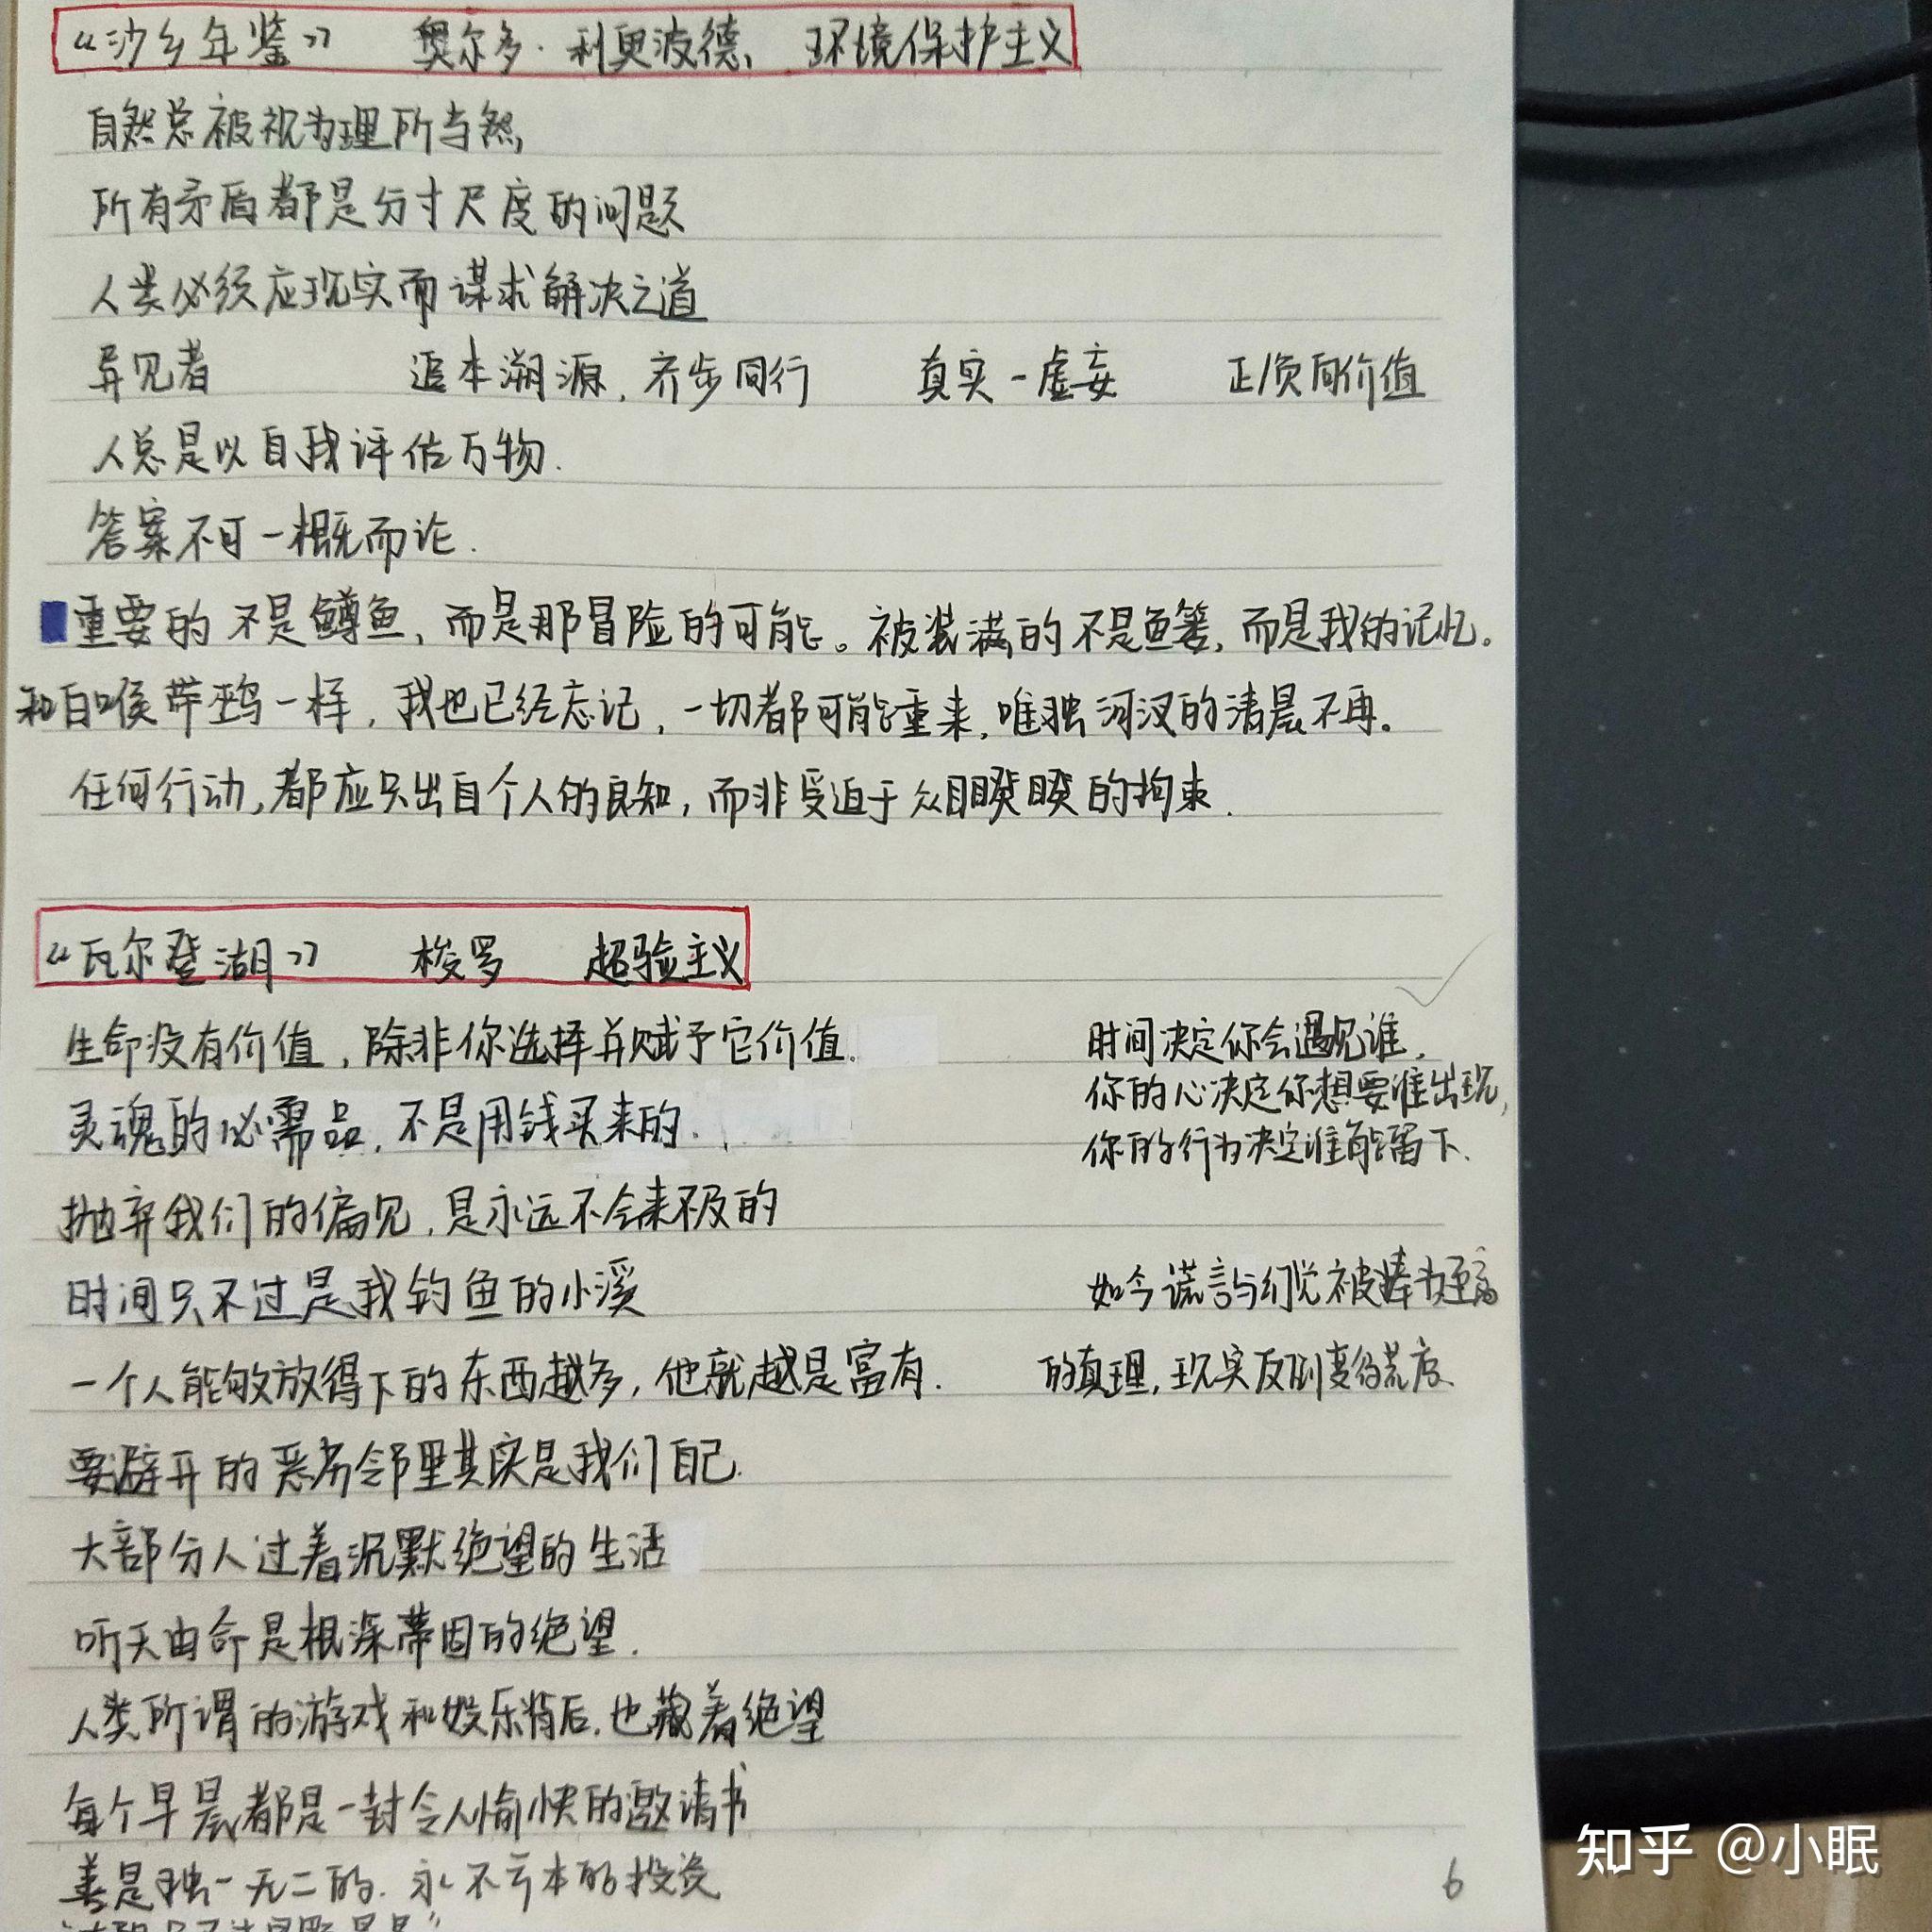 《沙乡年鉴》 奥尔多·利奥波德、 环境保护主义
自然总被视为理所当然,
所有矛盾都是分寸尺度的问题
人类必须应现实而谋求解决之道
异见者 追本溯源,齐步同行 真实-虚妄 正/负向价值
人总是以自我评估万物.
答案不可一概而论.
重要的不是鳟鱼,而是那冒险的可能。被装满的不是鱼篓,而是我的记忆。
和白喉带鹀一样,我也已经忘记,一切都可能重来,唯独河汊的清晨不再。
任何行动,都应只出自个人的良知,而非受迫于众目睽睽的拘束.
《瓦尔登湖》 梭罗 超验主义
生命没有价值,除非你选择并赋予它价值.
灵魂的必需品,不是用钱买来的.
抛弃我们的偏见,是永远不会来不及的
时间只不过是我钓鱼的小溪
一个人能够放得下的东西越多,他就越是富有.
要避开的恶劣邻里其实是我们自己.
大部分人过着沉默绝望的生活
听天由命是根深蒂固的绝望.
人类所谓的游戏和娱乐背后,也藏着绝望
每个早晨都是一封令人愉快的邀请书
善是独一无二的.永不亏本的投资
时间决定你会遇见谁,
你的心决定你想要谁出现,
你的行为决定谁能留下.
如今谎言与幻觉被捧为至高
的真理,现实反倒变得荒唐.
6
知乎 @小眠